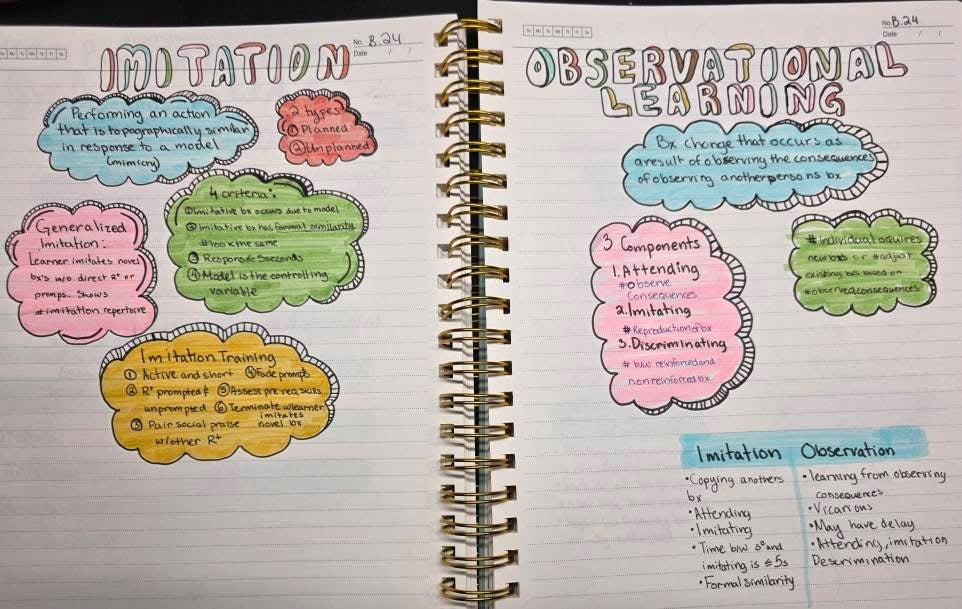 No. B.24
Date / /
IMITATION
Performing an action
that is topographically similar
in response to a model
(mimicry)
2 types
① Planned
② Unplanned
Generalized
Imitation:
Learner imitates novel
bx's w/o direct R+ or
promps. Shows
#imitation repertoire
4 criteria:
① Imitative bx occurs due to model
② Imitative bx has formal similarity
#100% the same
③ Response 5 seconds
④ Model is the controlling
variable
Imitation Training
① Active and short ④ Fade promps
② R+ prompted & ⑤ Assess pre-req skills
unprompted ⑥ Terminate w learner
imitates
③ Pair social praise novel bx
w/other R+
No. B.24
Date / /
OBSERVATIONAL
LEARNING
Bx change that occurs as
a result of observing the consequences
of observing another persons bx
3 Components
1. Attending
#Observe
Consequences
2. Imitating
# Reproduction of bx
3. Discriminating
# b/w reinforced and
non reinforced bx
# individual aquires
new bxs or #adjust
existing bxs based on
#observed consequences
Imitation Observation
• Copying anothers
bx
• Attending
• Imitating
• Time b/w sᴰ and
imitating is ≤ 5s
• Formal similarity
• learning from observing
consequences
• Vicarious
• May have delay
• Attending, imitation
Descrimination